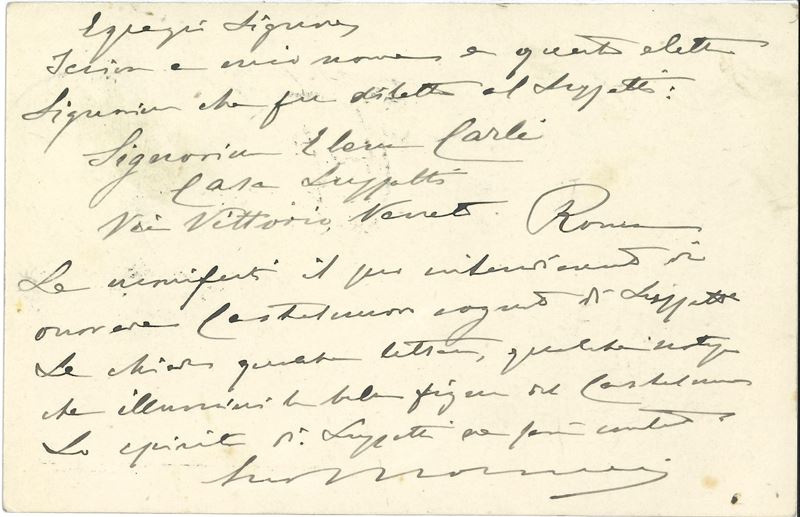 Egregio Signore
Scriva a mio nome a questa eletta
Signorina che fu diletta al Luzzatti:
Signorina Elena Carli
Casa Luzzatti
Via Vittorio Veneto. Roma
Le manifesti il suo intendimento di
onorare Castelnuovo cognato di Luzzatti
Le chieda qualche lettera, qualche notizia
che illumini la bella figura del Castelnuovo
Lo spirito di Luzzatti ne sarà contento